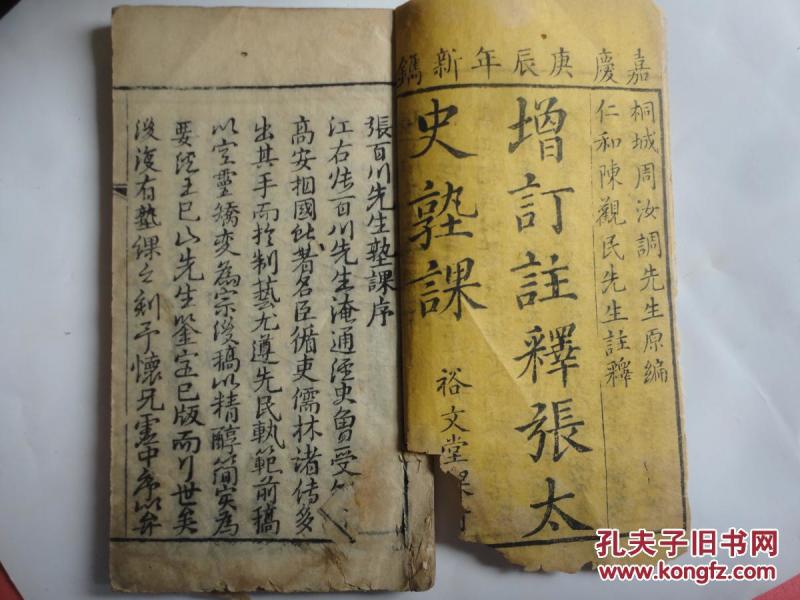 嘉慶庚辰年新鐫
桐城周汝調先生原編
仁和陳觀民先生註釋
增訂註釋張太
史塾課
裕文堂
張百川先生塾課序
江右張百川先生淹通經史魯受
高安相國此著名臣循吏儒林諸傳多
出其手而於制藝尤遵先民軌範前稿
以空靈矯變為宗後稿以精醇簡実為
要經王巳山先生鉴定已版而行世矣
後復有塾課之刻予懷兄憲中序以弁
孔夫子旧书网
www.kongfz.com